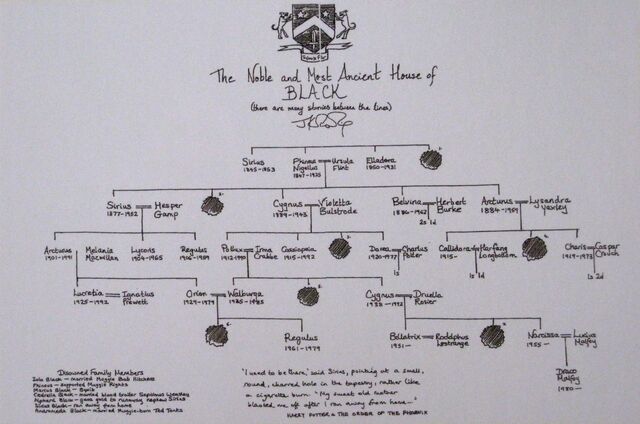 The Noble and Most Ancient House of
BLACK
(there are many stories between the lines)
Sirius Phineas Nigellus Ursula Flint Elladora
1845-1853 1847-1925 1850-1931
Sirius Hesper Gamp Cygnus Violetta Bulstrode Belvina Herbert Burke Arcturus Lysandra Yaxley
1877-1952 1889-1943 1884-1959
2s 1d
Arcturus Melania Macmillan Lycoris Regulus Pollux Irma Crabbe Cassiopeia Dorea Charlus Potter Callidora Harfang Longbottom Charis Caspar Crouch
1901-1991 1904-1965 1915-1992 1920-1977 1915- 1919-1973
1s 1s 1d 1s 2d
Lucretia Ignatius Prewett Orion Walburga Cygnus Druella Rosier
1925-1992 1929-1979
Regulus Bellatrix Rodolphus Lestrange Narcissa Lucius Malfoy
1961-1979 1951- 1955-
Draco Malfoy
1980-
Disowned Family Members
Isla Black - married Muggle Bob Hitchens
Phineas - supported Muggle Rights
Marius Black - Squib
Cedrella Black - married blood traitor Septimus Weasley
Alphard Black - gave gold to runaway nephew Sirius
Sirius Black - ran away from home
Andromeda Black - married Muggle-born Ted Tonks
"I used to be there," said Sirius, pointing at a small,
round, charred hole in the tapestry, rather like
a cigarette burn. "My sweet old mother
blasted me off after I ran away from home-"
HARRY POTTER & THE ORDER OF THE PHOENIX